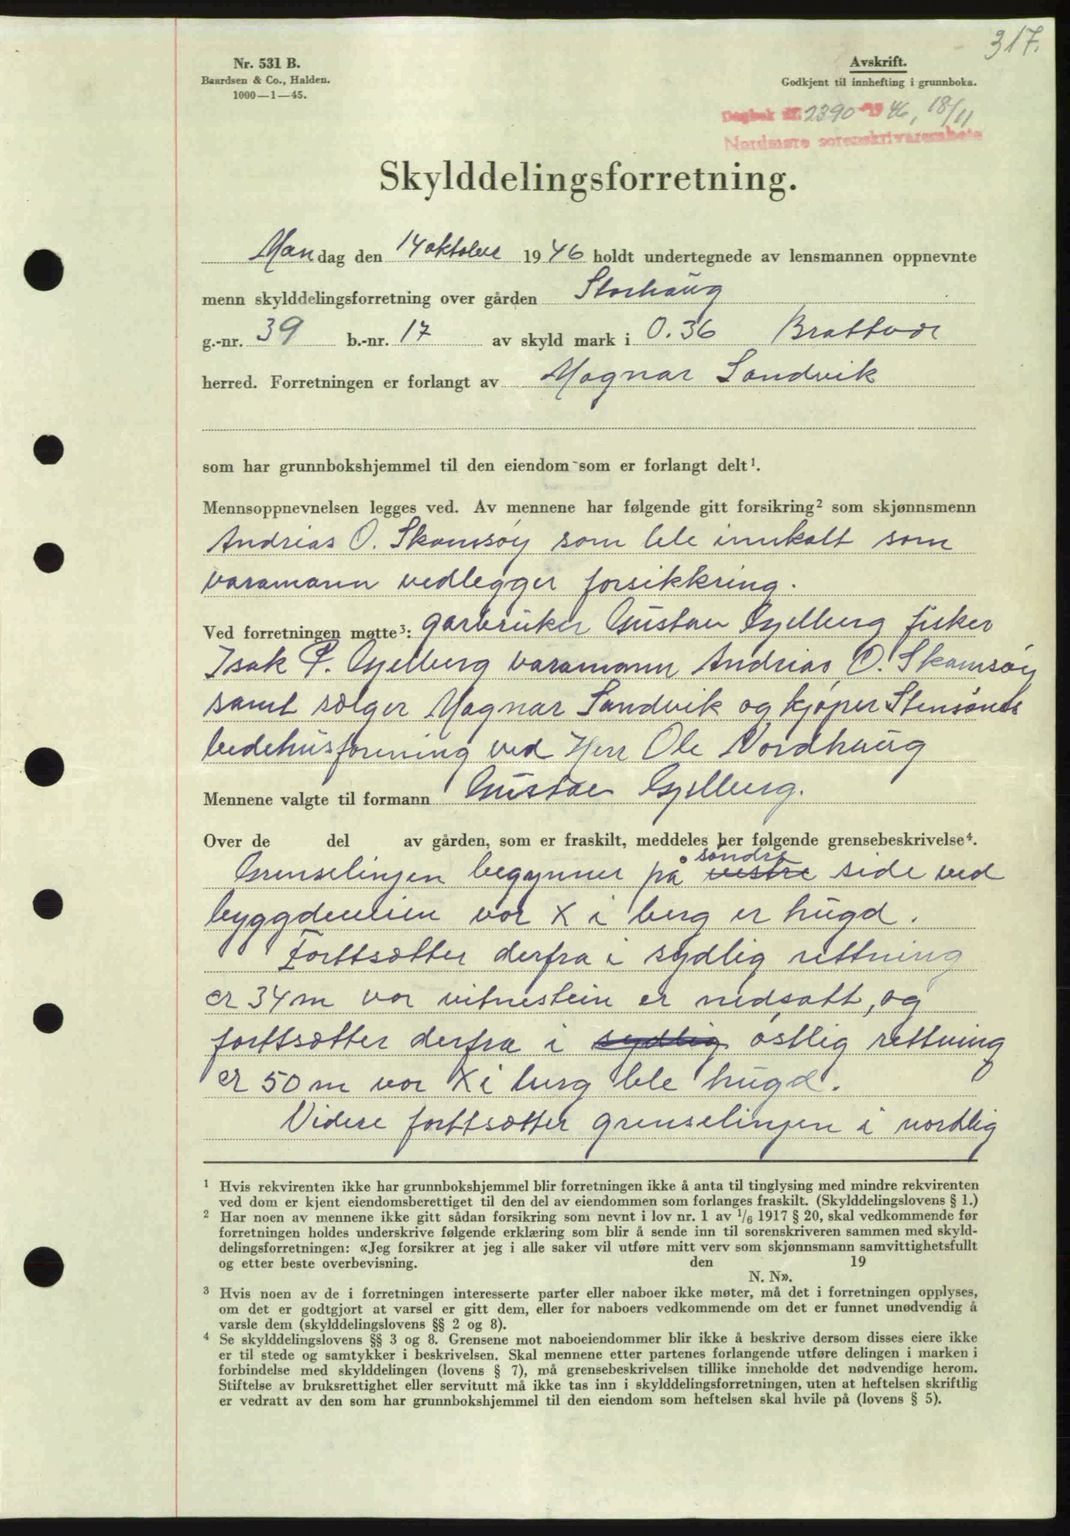 317.
Nr. 531 B.
Baardsen & Co., Halden.
1000—1—45.
Avskrift.
Godkjent til innhefting i grunnboka.
Dagbok nr. 2390 19 46, 18/11
Nordmøre sorenskriverembete
Skylddelingsforretning.
Mandag den 14 oktober 1946 holdt undertegnede av lensmannen oppnevnte
menn skylddelingsforretning over gården Storhaug
g.-nr. 39 b.-nr. 17 av skyld mark i 0.36 Brattvær
herred. Forretningen er forlangt av Magnar Sandvik
som har grunnbokshjemmel til den eiendom som er forlangt delt¹.
Mennsoppnevnelsen legges ved. Av mennene har følgende gitt forsikring² som skjønnsmenn
Andrias O. Skomsøy som ble innkalt som
varamann vedlegger forsikkring.
Ved forretningen møtte³: garbruker Gustav Gjelberg fisker
Isak P. Gjelberg varamann Andrias O. Skomsøy
samt sælger Magnar Sandvik og kjøper Stensønes
bedehusforening ved Herr Ole Nordhaug
Mennene valgte til formann Gustav Gjelberg.
Over de del av gården, som er fraskilt, meddeles her følgende grensebeskrivelse⁴.
søndre
Grenselinjen begynner på vestre side ved
byggdeveien vor X i berg er hugd.
Forttsætter derfra i sydlig rettning
er 34 m vor vitnestein er nedsatt, og
forttsætter derfra i sydlig østlig rettning
er 50 m vor X i berg ble hugd.
Videre forttsætter grenselinjen i nordlig
¹ Hvis rekvirenten ikke har grunnbokshjemmel blir forretningen ikke å anta til tinglysing med mindre rekvirenten
ved dom er kjent eiendomsberettiget til den del av eiendommen som forlanges fraskilt. (Skylddelingslovens § 1.)
² Har noen av mennene ikke gitt sådan forsikring som nevnt i lov nr. 1 av 1/6 1917 § 20, skal vedkommende før
forretningen holdes underskrive følgende erklæring som blir å sende inn til sorenskriveren sammen med skyld-
delingsforretningen: «Jeg forsikrer at jeg i alle saker vil utføre mitt verv som skjønnsmann samvittighetsfullt
og etter beste overbevisning. den 19
N. N».
³ Hvis noen av de i forretningen interesserte parter eller naboer ikke møter, må det i forretningen opplyses,
om det er godtgjort at varsel er gitt dem, eller for naboers vedkommende om det er funnet unødvendig å
varsle dem (skylddelingslovens §§ 2 og 8).
⁴ Se skylddelingslovens §§ 3 og 8. Grensene mot naboeiendommer blir ikke å beskrive dersom disses eiere ikke
er til stede og samtykker i beskrivelsen. Skal mennene etter partenes forlangende utføre delingen i marken i
forbindelse med skylddelingen (lovens § 7), må grensebeskrivelsen tillike inneholde det nødvendige herom.
Stiftelse av bruksrettighet eller servitutt må ikke tas inn i skylddelingsforretningen, uten at heftelsen skriftlig
er vedtatt av den som har grunnbokshjemmel til den eiendom som heftelsen skal hvile på (lovens § 5).